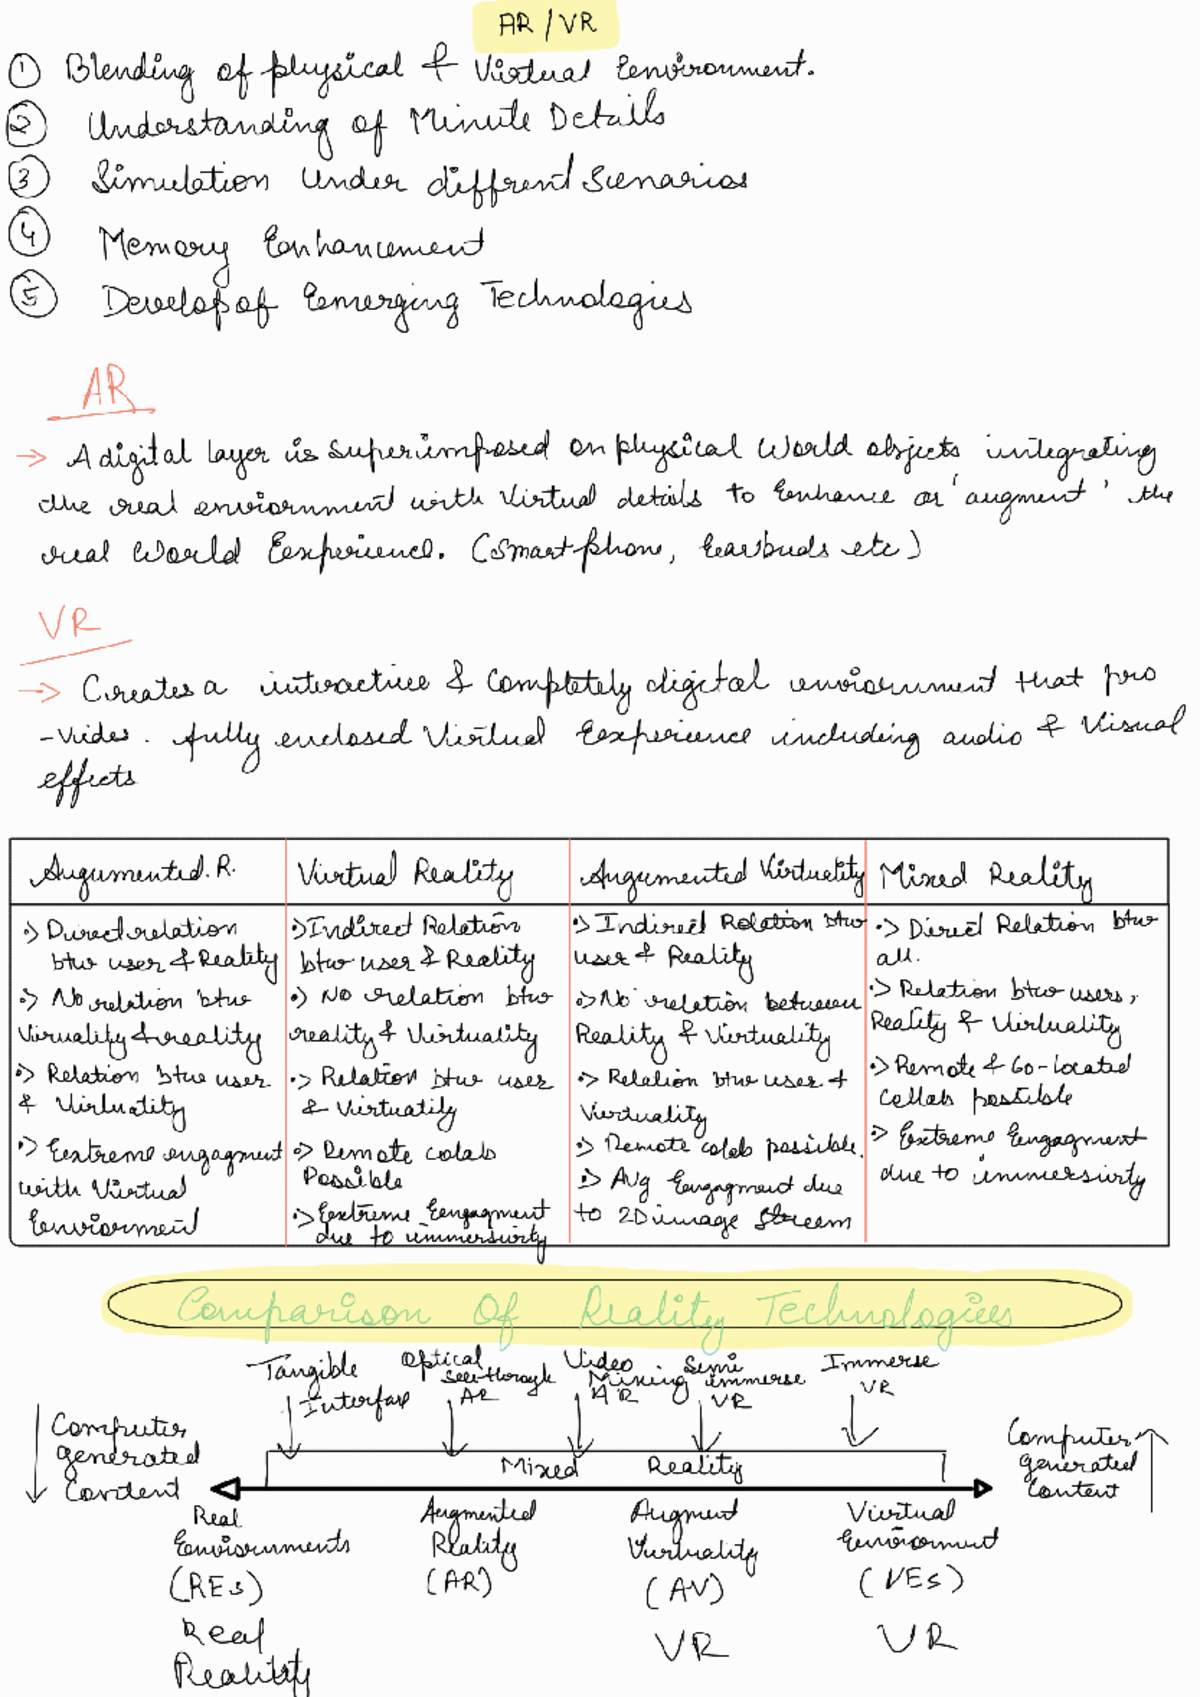 AR / VR
① Blending of physical & Virtual Environment.
② Understanding of Minute Details
③ Simulation Under diffrent Scenarios
④ Memory Enhancement
⑤ Develop of Emerging Technologies
AR
→ A digital layer is Superimposed on physical World objects integrating
the real enviornment with Virtual details to Enhance or 'augment' the
real World Experience. (Smart phone, Earbuds etc)
VR
→ Creates a interactive & Completely digital enviornment that pro
-vides. fully enclosed Virtual Experience including audio & Visual
effects
Augumented. R.
•> Direct relation
btw user & Reality
•> No relation btw
Virualify & reality
•> Relation btw user
& Virluatity
•> Extreme engagment
with Virtual
Enviorment
Virtual Reality
•> Indirect Relation
btw user & Reality
•> No relation btw
reality & Virtuality
•> Relation btw user
& Virtuatily
•> Remote colab
Possible
•> Extreme Eengagment
due to immersivity
Augumented Virtuality
•> Indirect Relation btw
user & Reality
•> No relation between
Reality & Virtuality
•> Relation btw user &
Virtuality
•> Remote colab possible.
•> Avg Engagment due
to 2D image Stream
Mixed Reality
•> Direct Relation btw
all.
•> Relation btw users,
Reality & Virluality
•> Remote & Co-located
collab possible
•> Extreme Eengagment
due to immersivity
Comparison Of Reality Technologies
Tangible
Interface
Optical
see-through
AR
Video
Mixing
AR
Semi
immerse
VR
Immerse
VR
Computer
generated
Content
Mixed Reality
Computer
generated
Content
Real
Enviornments
(REs)
Real
Reality
Augmented
Reality
(AR)
Augment
Virtuality
(AV)
VR
Virtual
Enviornment
(VEs)
VR